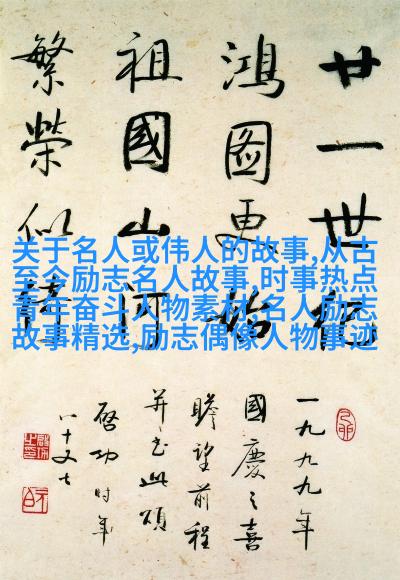 廿一世紀
鴻圖更始
祖國山河
繁榮似
一九九九年
國慶之喜
瞻望前程
并书此頌
啓功时年
八十又七
关于名人或伟人的故事,从古
至今励志名人故事,时事热点
青年奋斗人物素材,名人励志
故事精选,励志偶像人物事迹